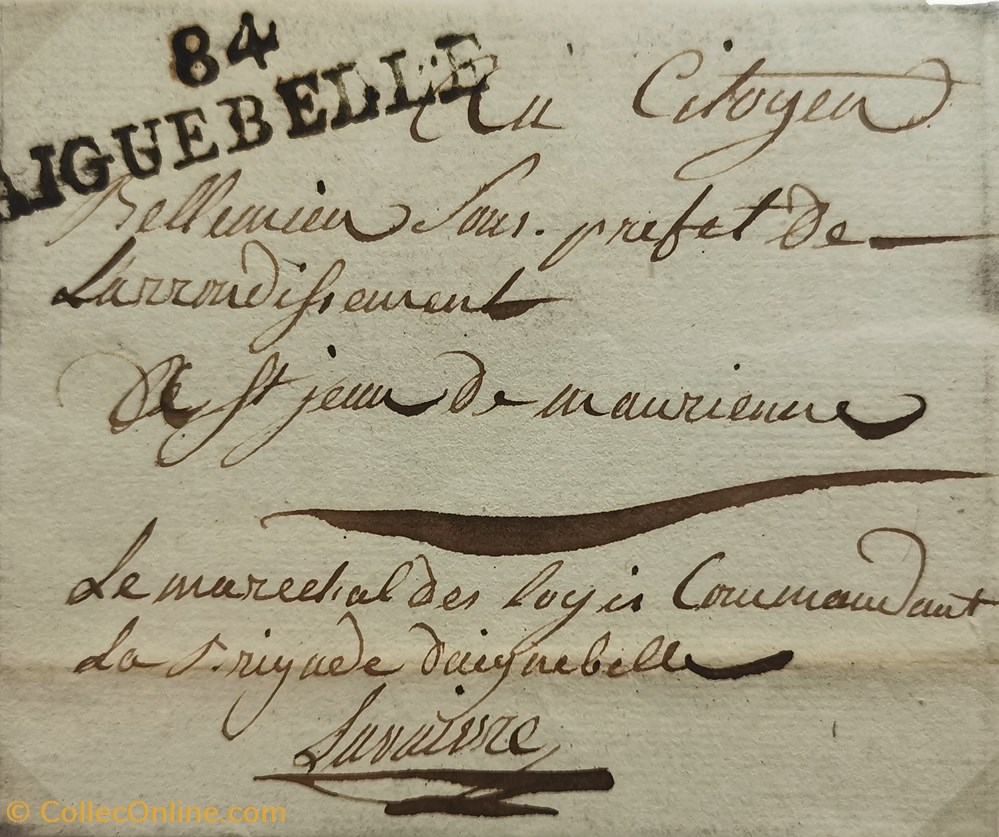 84
AIGUEBELLE
Au Citoyen
Bellemin Sous-prefet de
Larrondissement
De St jean de maurienne
Le marechal des logis Commandant
La Brigade daiguebelle
© CollecOnline.com